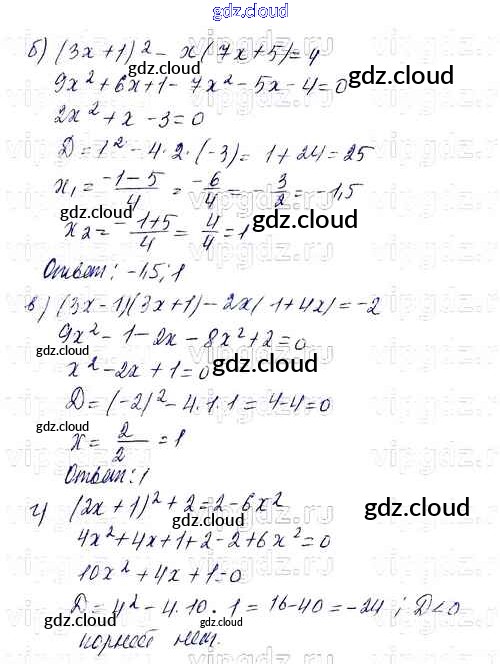 gdz.cloud
б) (3x+1)² - x(7x+5)=4
9x²+6x+1-7x²-5x-4=0
gdz.cloud
2x²+x-3=0
gdz.cloud
D=1²-4·2·(-3)=1+24=25
x₁= -1-5/4 = -6/4 = -3/2 = -1,5
gdz.cloud
x₂= -1+5/4 = 4/4 = 1
gdz.cloud
Ответ: -1,5; 1
gdz.cloud
в) (3x-1)(3x+1)-2x(1+4x)=-2
9x²-1-2x-8x²+2=0
gdz.cloud
x²-2x+1=0
gdz.cloud
D=(-2)²-4·1·1=4-4=0
gdz.cloud
x= 2/2 =1
gdz.cloud
Ответ: 1
г) (2x+1)²+2=2-6x²
gdz.cloud
gdz.cloud
4x²+4x+1+2-2+6x²=0
10x²+4x+1=0
gdz.cloud
D=4²-4·10·1=16-40=-24; D<0
gdz.cloud
корней нет.